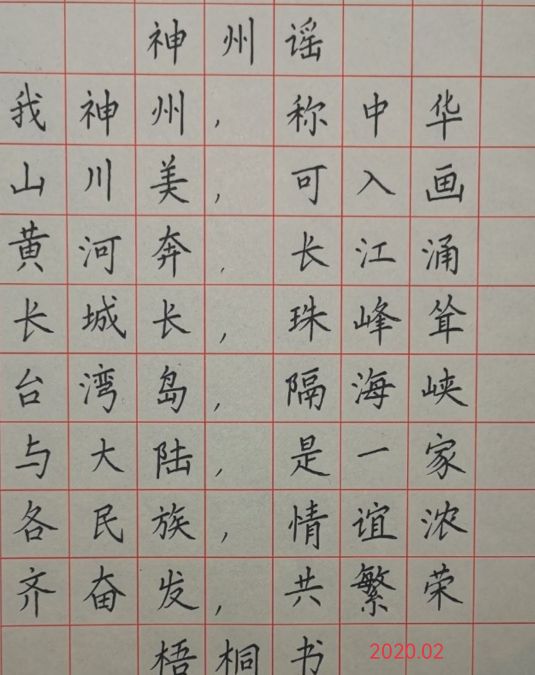 神州谣
我神州，称中华
山川美，可入画
黄河奔，长江涌
长城长，珠峰耸
台湾岛，隔海峡
与大陆，是一家
各民族，情谊浓
齐奋发，共繁荣
梧桐书 2020.02